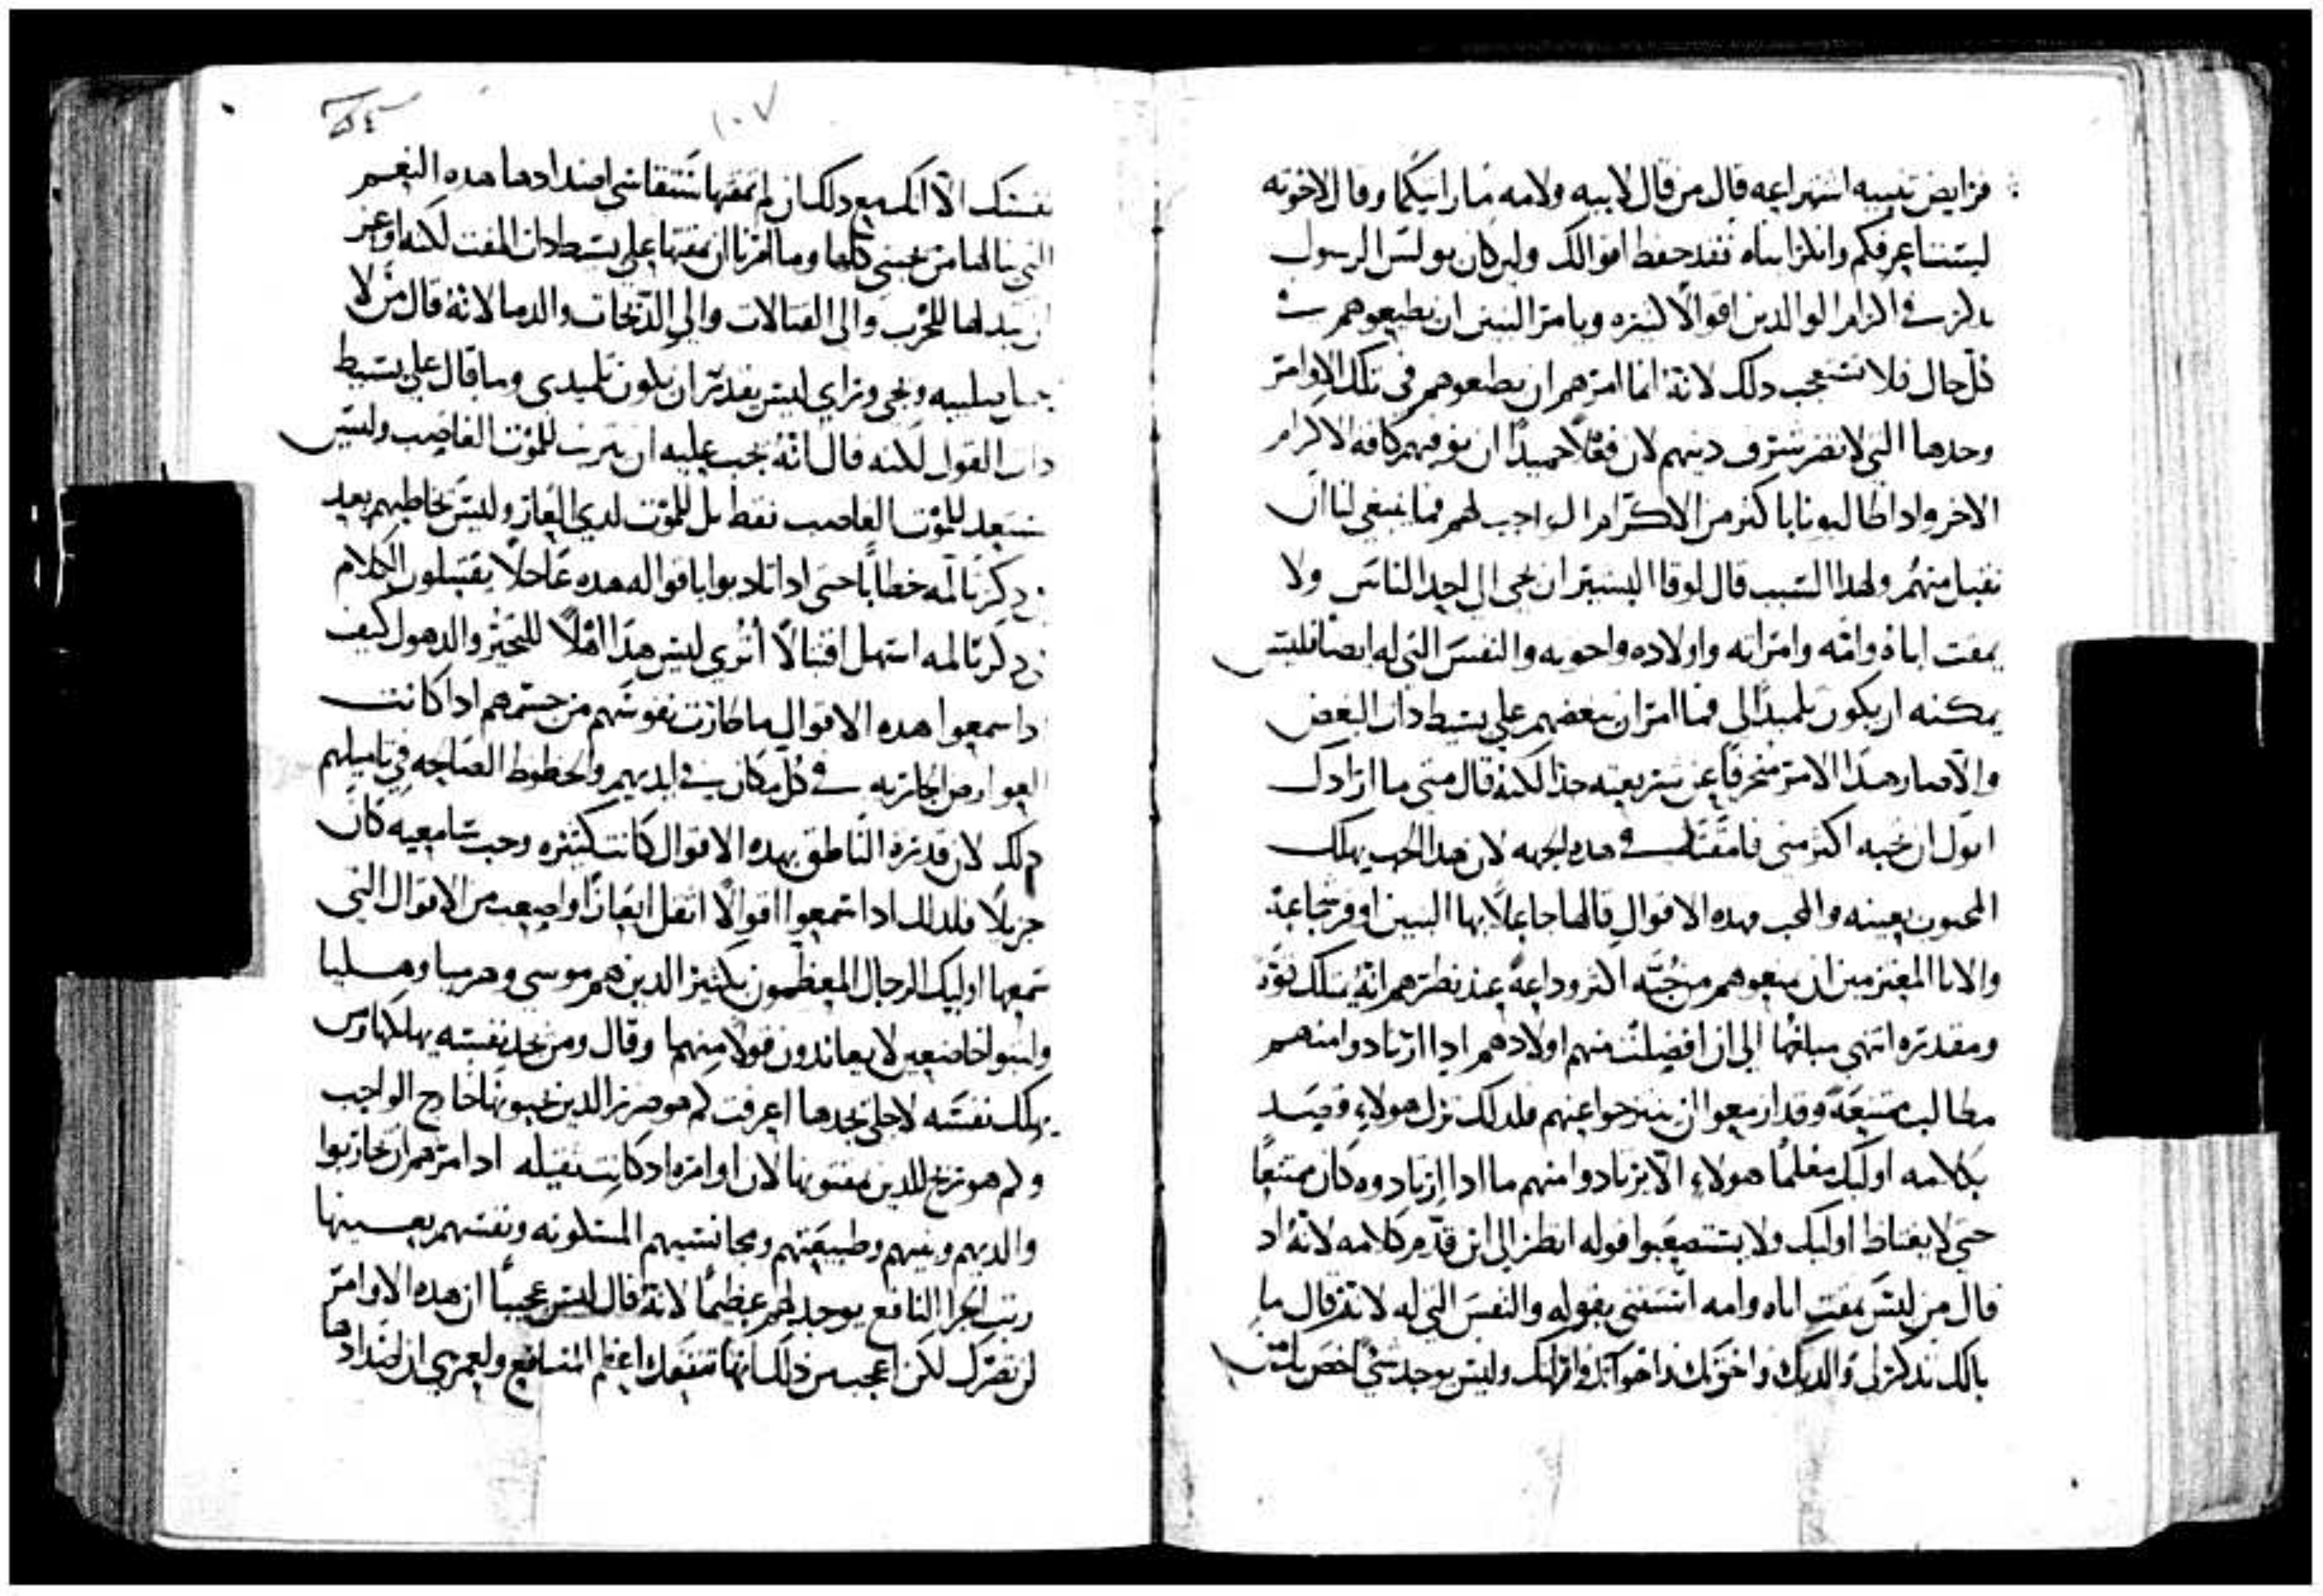 فرايض تنبيه اشهر اعه قال من قال لابيه ولامه ما رايتكما وقال لاخوته
لستنا اعرفكم وانكر ابناه فقد حفظ اقوالك ولين كان بولس الرسول
يذكر في اكرام الوالدين اقوالًا كثيره ويامر البنين ان يطيعوهم في
كل حال فلا تستعجب دلك لانه انما امرهم ان يطيعوهم في تلك الاوامر
وحدها التي لا تضر شرف دينهم لان فعلًا حميدًا ان نوفيهم كافه الاكرام
الاخر وادا طالبونا باكثر من الاكرام الواجب لهم فما ينبغي لنا ان
نقبل منهم ولهدا السبب قال لوقا البشير ان يجي الي احد الناس ولا
يمقت اباه وامه وامراته واولاده واخوته والنفس التي له ايضا فليس
يمكنه ان يكون تلميدًا لي فما امر ان نبغضهم علي بسيط دات البغض
والا صار هدا الامر منحرفًا عن شريعته جدا لكنه قال متي ما ارادك
ان تحبه اكثر مني فامقته في هده الجهه لان هدا الحب يهلك
المحبوب بعينه والمحب وهده الاقوال قالها جاعلًا بها البنين اوفر شجاعة
والابا المعتزمين ان يمنعوهم من حبه اكثر وداعة عند نظرهم انه يملك قوة
ومقدره انتهي مبلغها الي ان افصلت منهم اولادهم ادا ارتادوا منهم
مطالب ممتنعة وقد ازمعوا ان ينتزحوا عنهم فلدلك ترك هولاء وقصد
بكلامه اوليك معلمًا هولاء الا يرتادوا منهم ما ادا ارتادوه كان ممتنعًا
حتي لا يغتاظ اوليك ولا يستصعبوا قوله انظر الي اين قدم كلامه لانه اد
قال من ليس يمقت اباه وامه استثني بقوله والنفس التي له لانه قال ما
بالك تدكر لي والديك واخوتك واخواتك وامراتك وليس يوجد شي اخص بك من
٥٤
١٠٧
نفسك الا انك مع دلك ان لم تمقتها ستقاسي اضدادها هده النعم
التي نالها من يحبني كلها وما امرنا ان نمقتها علي بسيط دات المقت لكنه اوعز
ان نبدلها للحرب والي القتالات والي الدبحات والدما لانه قال من لا
يحمل صليبه ويجي وراي ليس يقدر ان يكون تلميدي وما قال علي بسيط
دات القول لكنه قال انه يجب عليه ان يترتب للموت الغاصب وليس
يستعد للموت الغاصب فقط بل للموت لدي العار وليس يخاطبهم بعد
في دكر تالمه خطابًا حتي ادا تادبوا باقواله هده عاجلًا يقتبلون الكلام
في دكر تالمه اسهل اقتبالًا اتري ليس هدا اهلًا للتحير والدهول كيف
ادا سمعوا هده الاقوال ما طارت نفوسهم من جسمهم اد كانت
العوارض الحازبه في كل مكان في ايديهم والحظوظ الصالحه في تاميلهم
دلك لان قدرة الناطق بهده الاقوال كانت كثيره وحب سامعيه كان
جزيلًا فلدلك ادا سمعوا اقوالًا اثقل ايعازًا واصعب من الاقوال التي
سمعها اوليك الرجال المعظمون بكثير الدين هم موسي وهرميا وهيليا
ولبثوا خاضعين لا يعاندون قولًا منهما وقال ومن يجد نفسه يهلكها ومن
يهلك نفسه لاجلي يجدها اعرفت كم هو ضرر الدين يحبونها خارج الواجب
وكم هو ربح للدين يمقتونها لان اوامره اد كانت ثقيله اد امرهم ان يحاربوا
والديهم وبنيهم وطبيعتهم ومجانستهم المسكونه ونفسهم بعينها
رتب الجزا النافع يوجد لهم عظيمًا لانه قال ليس عجيبًا ان هده الاوامر
لن تضرك لكن اعجب من دلك انها تنفعك اعظم المنافع ولعمري ان اضدادها